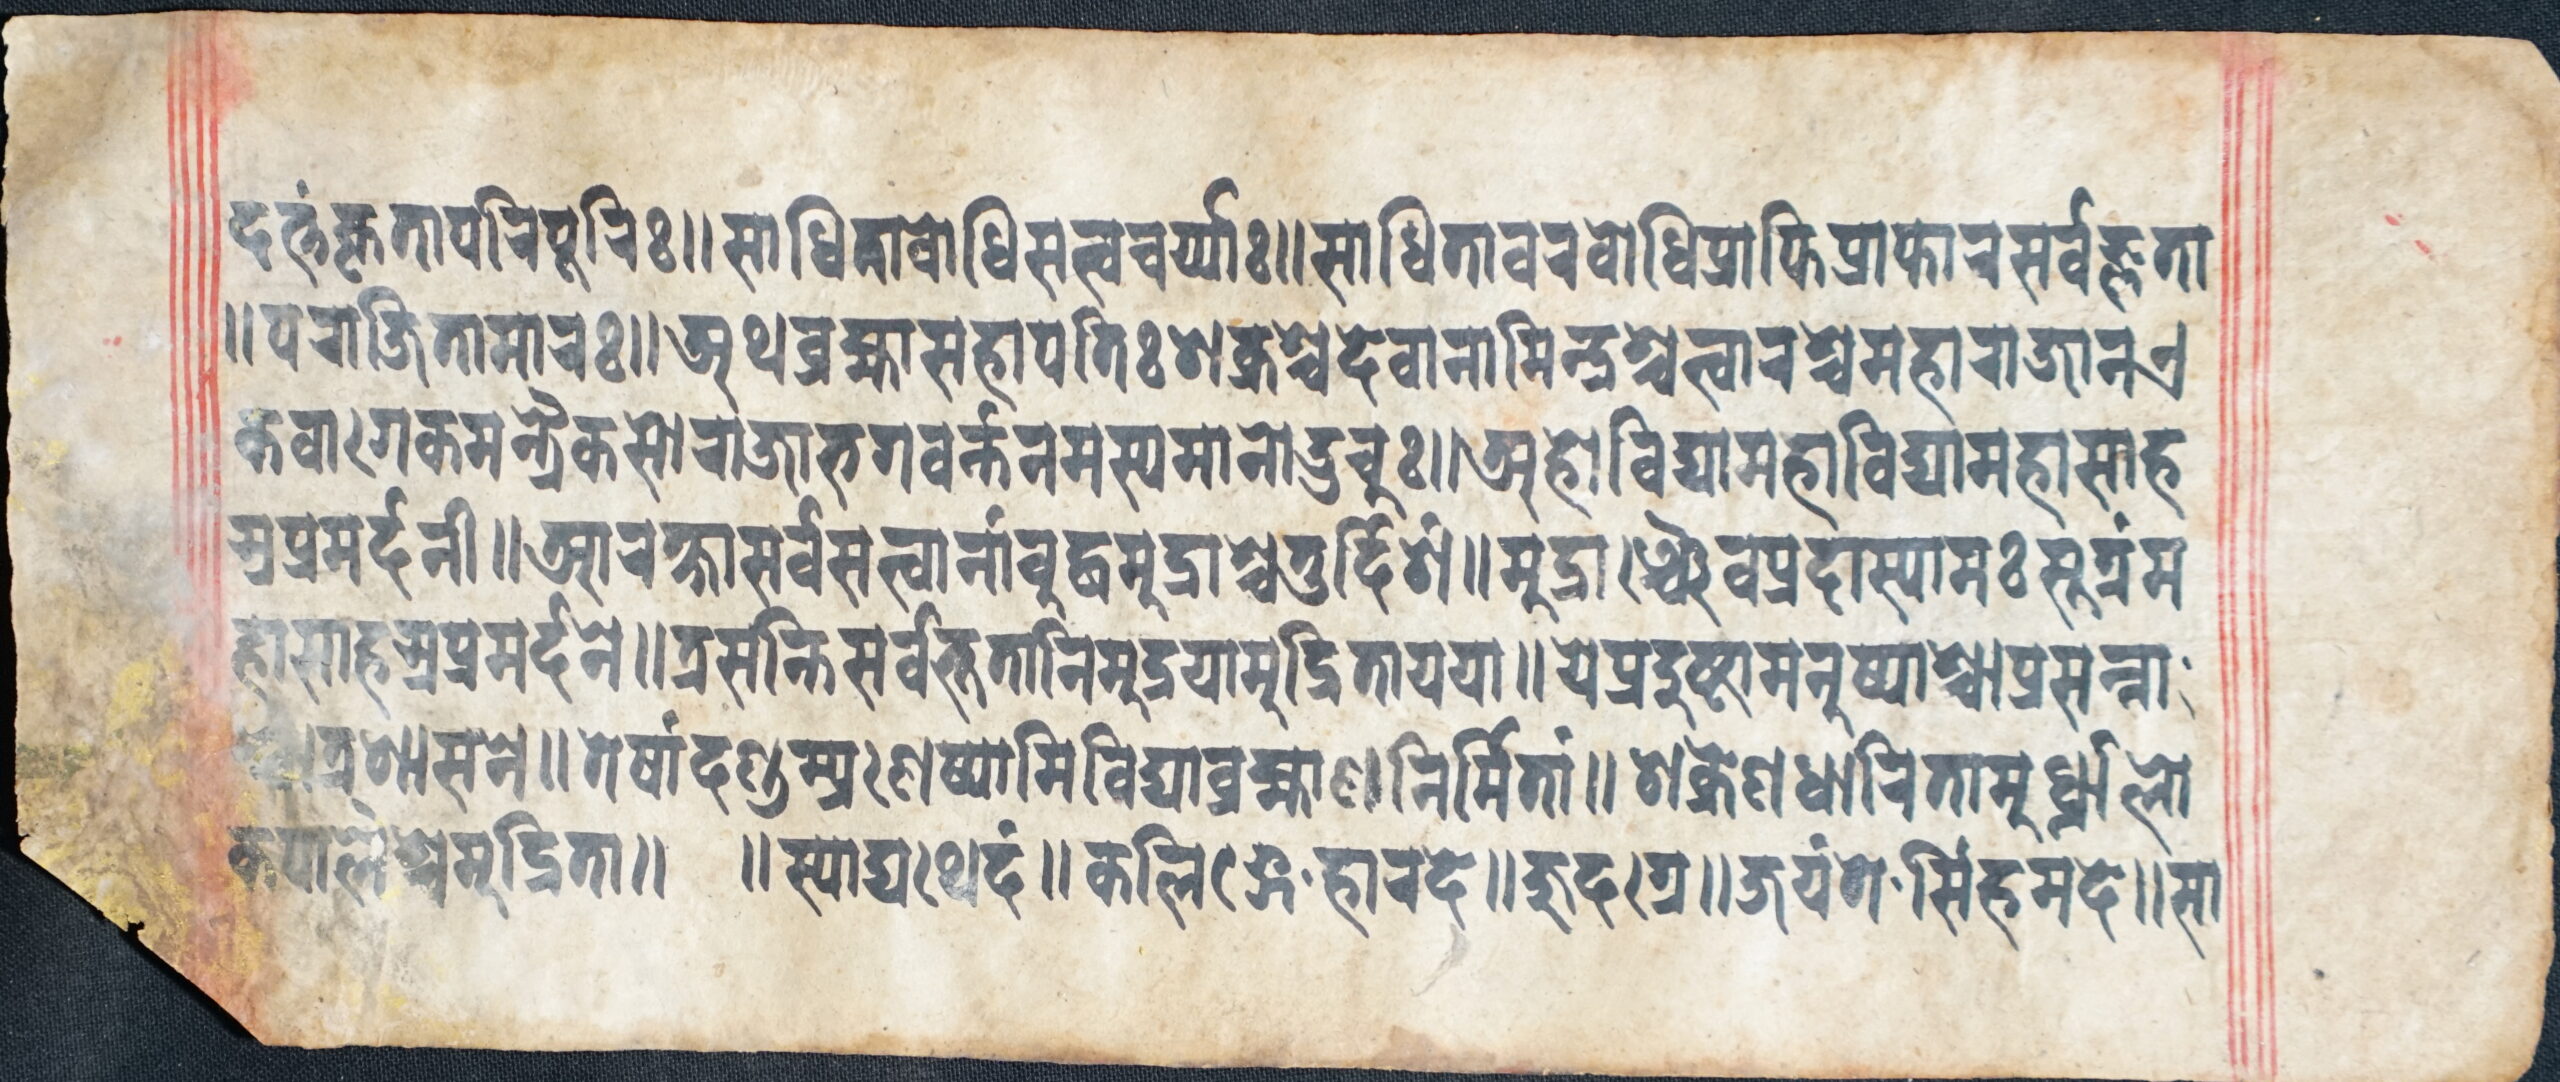 दत्तंकृतापरिपूरिः॥साधिताबोधिसत्त्वचर्य्याः॥साधितावरबोधिप्राप्तिप्राप्तारसर्वज्ञता
॥पराजितामारः॥अथब्रह्मासहापतिःशक्रश्चदेवानामिन्द्रश्चत्वारश्चमहाराजानए
कवागेकमन्त्रैकसोराजाभगवन्तंनमस्यमानोदुचुः॥अहोविद्यामहाविद्यामहासाह
स्रप्रमर्दनी॥आरक्षासर्वसत्त्वानांबुद्धमुद्राश्चतुर्दिशं॥मुद्राञ्चैवप्रदास्यामःसूत्रंम
हासाहस्रप्रमर्दने॥त्रसन्तिसर्वभूतानिमुद्रयामुद्रितायया॥येप्रदुष्टामनुष्याश्चाप्रसन्नाः
त्रशासने॥तेषांदण्डम्प्रणेष्यामिविद्याब्रह्माणनिर्मितां॥शक्रेणधारितामुर्ध्नालो
कपालैश्चमुद्रिता॥ ॥स्याद्यथेदं॥कलिङ्गे·हारदे॥जुदग्रे॥जयंते·सिंहमदे॥सा